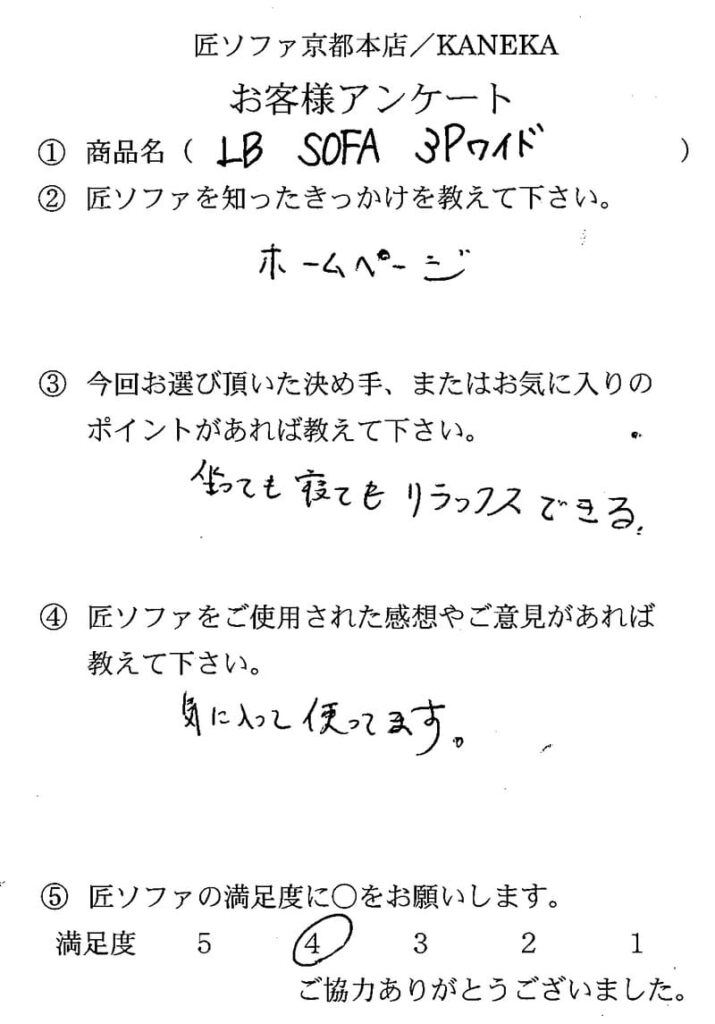 匠ソファ京都本店／KANEKA
お客様アンケート
① 商品名（ LB SOFA 3Pワイド ）
② 匠ソファを知ったきっかけを教えて下さい。
ホームページ
③ 今回お選び頂いた決め手、またはお気に入りの
ポイントがあれば教えて下さい。
坐っても寝てもリラックスできる。
④ 匠ソファをご使用された感想やご意見があれば
教えて下さい。
気に入って使ってます。
⑤ 匠ソファの満足度に○をお願いします。
満足度 5 4 3 2 1
ご協力ありがとうございました。